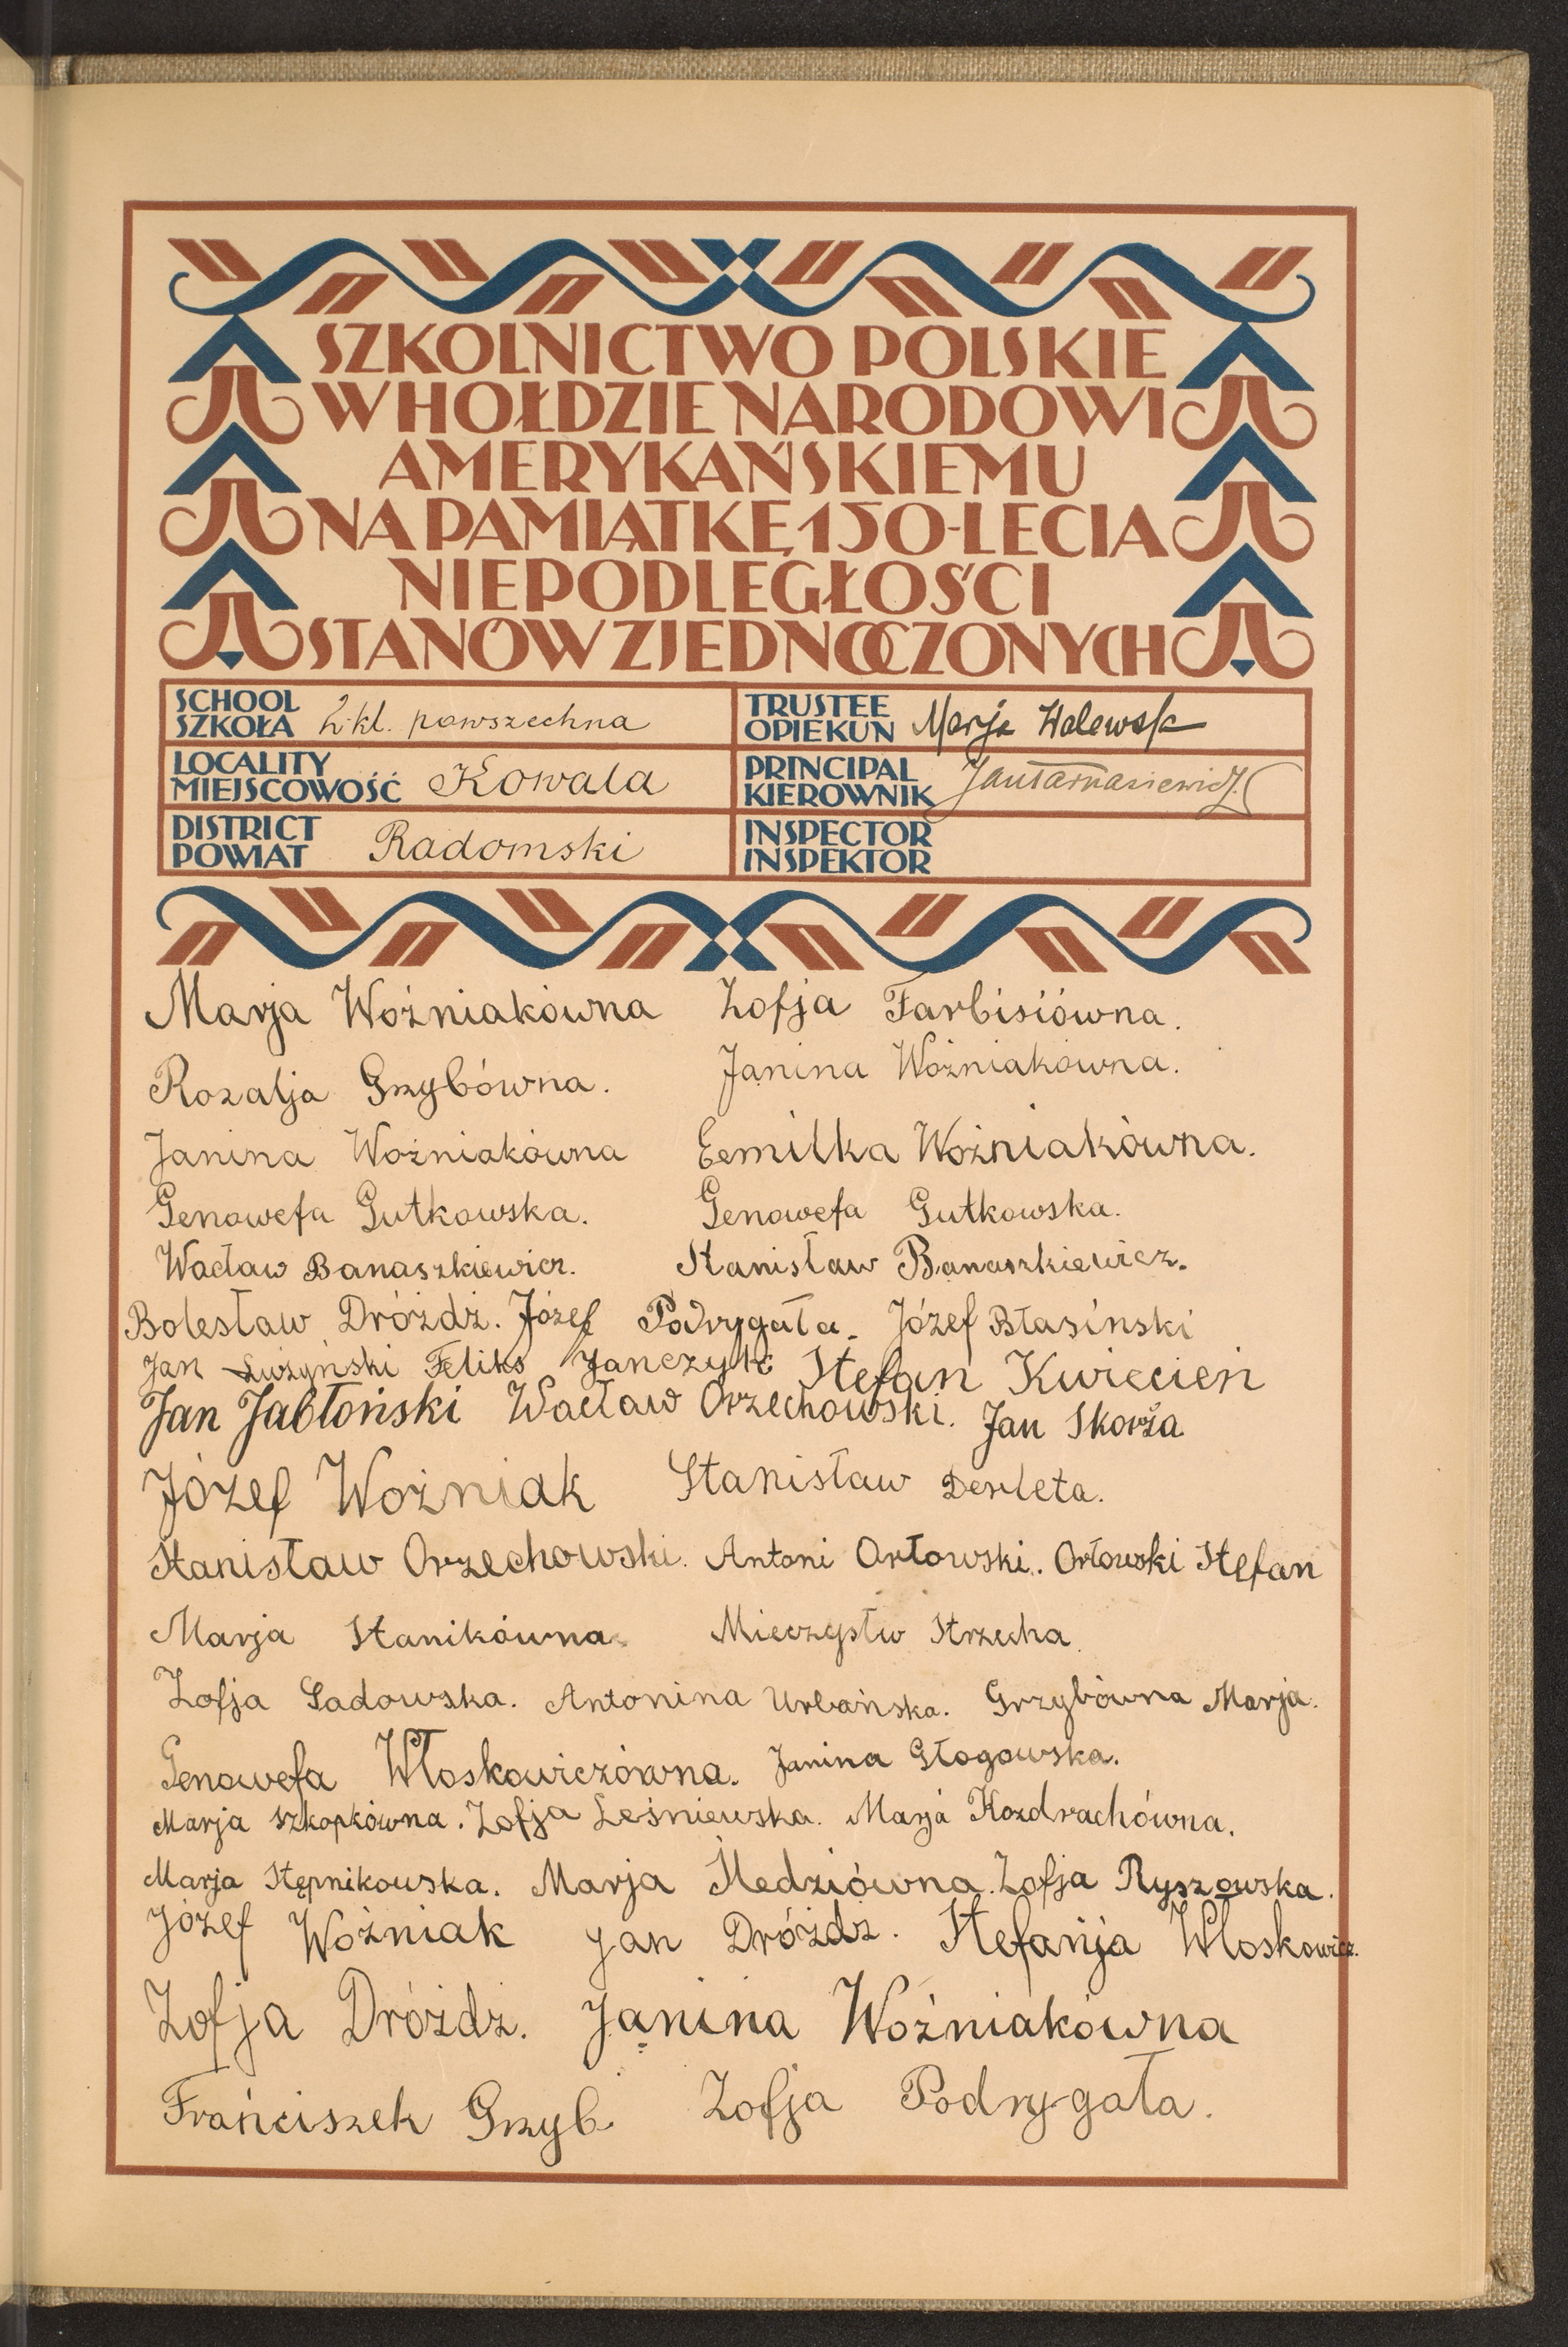 SZKOLNICTWO POLSKIE
W HOŁDZIE NARODOWI
AMERYKAŃSKIEMU
NA PAMIĄTKĘ 150-LECIA
NIEPODLEGŁOŚCI
STANÓW ZJEDNOCZONYCH
SCHOOL
SZKOŁA 2·kl. powszechna
TRUSTEE
OPIEKUN Marja Walewsk
LOCALITY
MIEJSCOWOŚĆ Kowala
PRINCIPAL
KIEROWNIK
DISTRICT
POWIAT Radomski
INSPECTOR
INSPEKTOR
Marja Woźniakówna Zofja Farbisiówna.
Rozalja Grzybówna. Janina Woźniakówna.
Janina Woźniakówna Eemilka Woźniakówna.
Genowefa Gutkowska. Genowefa Gutkowska.
Wacław Banaszkiewicz. Stanisław Banaszkiewicz.
Bolesław Dróżdż. Józef Podrygała. Józef Błasiński
Jan Łużyński Feliks Janczyk Stefan Kwiecień
Jan Jabłoński Wacław Orzechowski. Jan Skorża
Józef Woźniak Stanisław Derleta.
Stanisław Orzechowski. Antoni Orłowski. Orłowski Stefan
Marja Stanikówna. Mieczysłw Strzecha
Zofja Sadowska. Antonina Urbańska. Grzybówna Marja.
Genowefa Włoskowiczówna. Janina Głogowska.
Marja Szkopkówna. Zofja Leśniewska. Marja Kozdrachówna.
Marja Stępnikowska. Marja Śledziówna. Zofja Ryszowska.
Józef Woźniak Jan Dróżdż. Stefanja Włoskowicz.
Zofja Dróżdż. Janina Woźniakówna
Franciszek Grzyb. Zofja Podrygała.